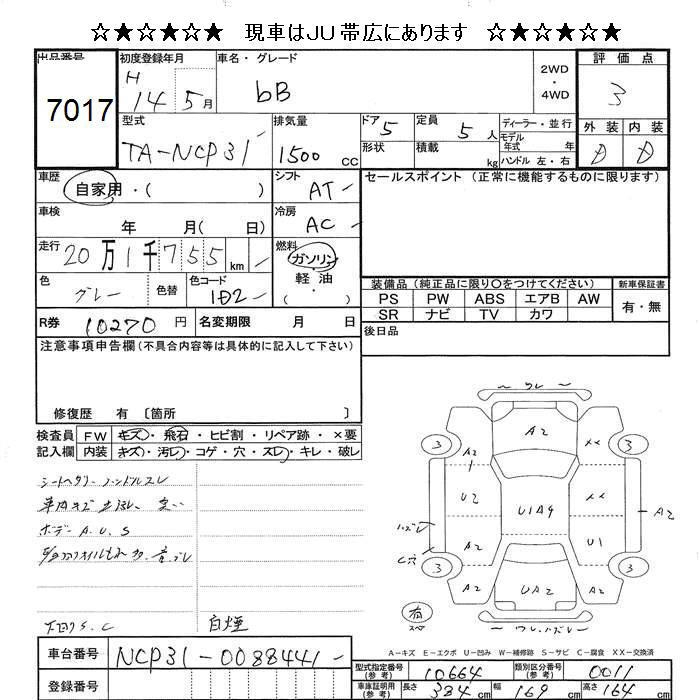 ☆★☆★☆★ 現車はJU帯広にあります ☆★☆★☆★
出品番号 初度登録年月 車名・グレード 2WD・4WD 評価点
7017 H 14 5月 bB 3
型式 排気量 ドア 5 定員 5人 ディーラー・並行 外装 内装
TA-NCP31 1500cc 形状 積載 kg モデル年式 年 ハンドル 左・右 D D
車歴 自家用・( ) シフト AT セールスポイント (正常に機能するものに限ります)
車検 年 月( 日) 冷房 AC
走行 20万1千755km 燃料 ガソリン
軽油
( ・ )
色 グレー 色替 色コード 1D2
装備品 (純正品に限り○をつけてください) 新車保証書
PS PW ABS エアB AW 有・無
SR ナビ TV カワ
R券 10270円 名変期限 月 日 後日品
注意事項申告欄(不具合内容等は具体的に記入して下さい)
修復歴 有 〔箇所 〕
検査員 FW キズ・飛石・ヒビ割・リペア跡・×要
記入欄 内装 キズ・汚レ・コゲ・穴・スレ・キレ・破レ
シートヘタリ ハンドルスレ
車内キズ
ボデー A.U.S
下回りS.C 白煙
ワレ
A2
3 3
A2 ××
U2 U1A9 ×× A2
ハズレ
C穴 A2 U1
3 3
A2 UA2 A2
有
スペア
ワレ,ハズレ
A-キズ E-エクボ U-凹み W-補修跡 S-サビ C-腐食 XX-交換済
車台番号 NCP31-0088441
登録番号
型式指定番号(参考) 10664 類別区分番号(参考) 0011
車庫証明用(参考) 長さ 384cm 幅 169cm 高さ 164cm